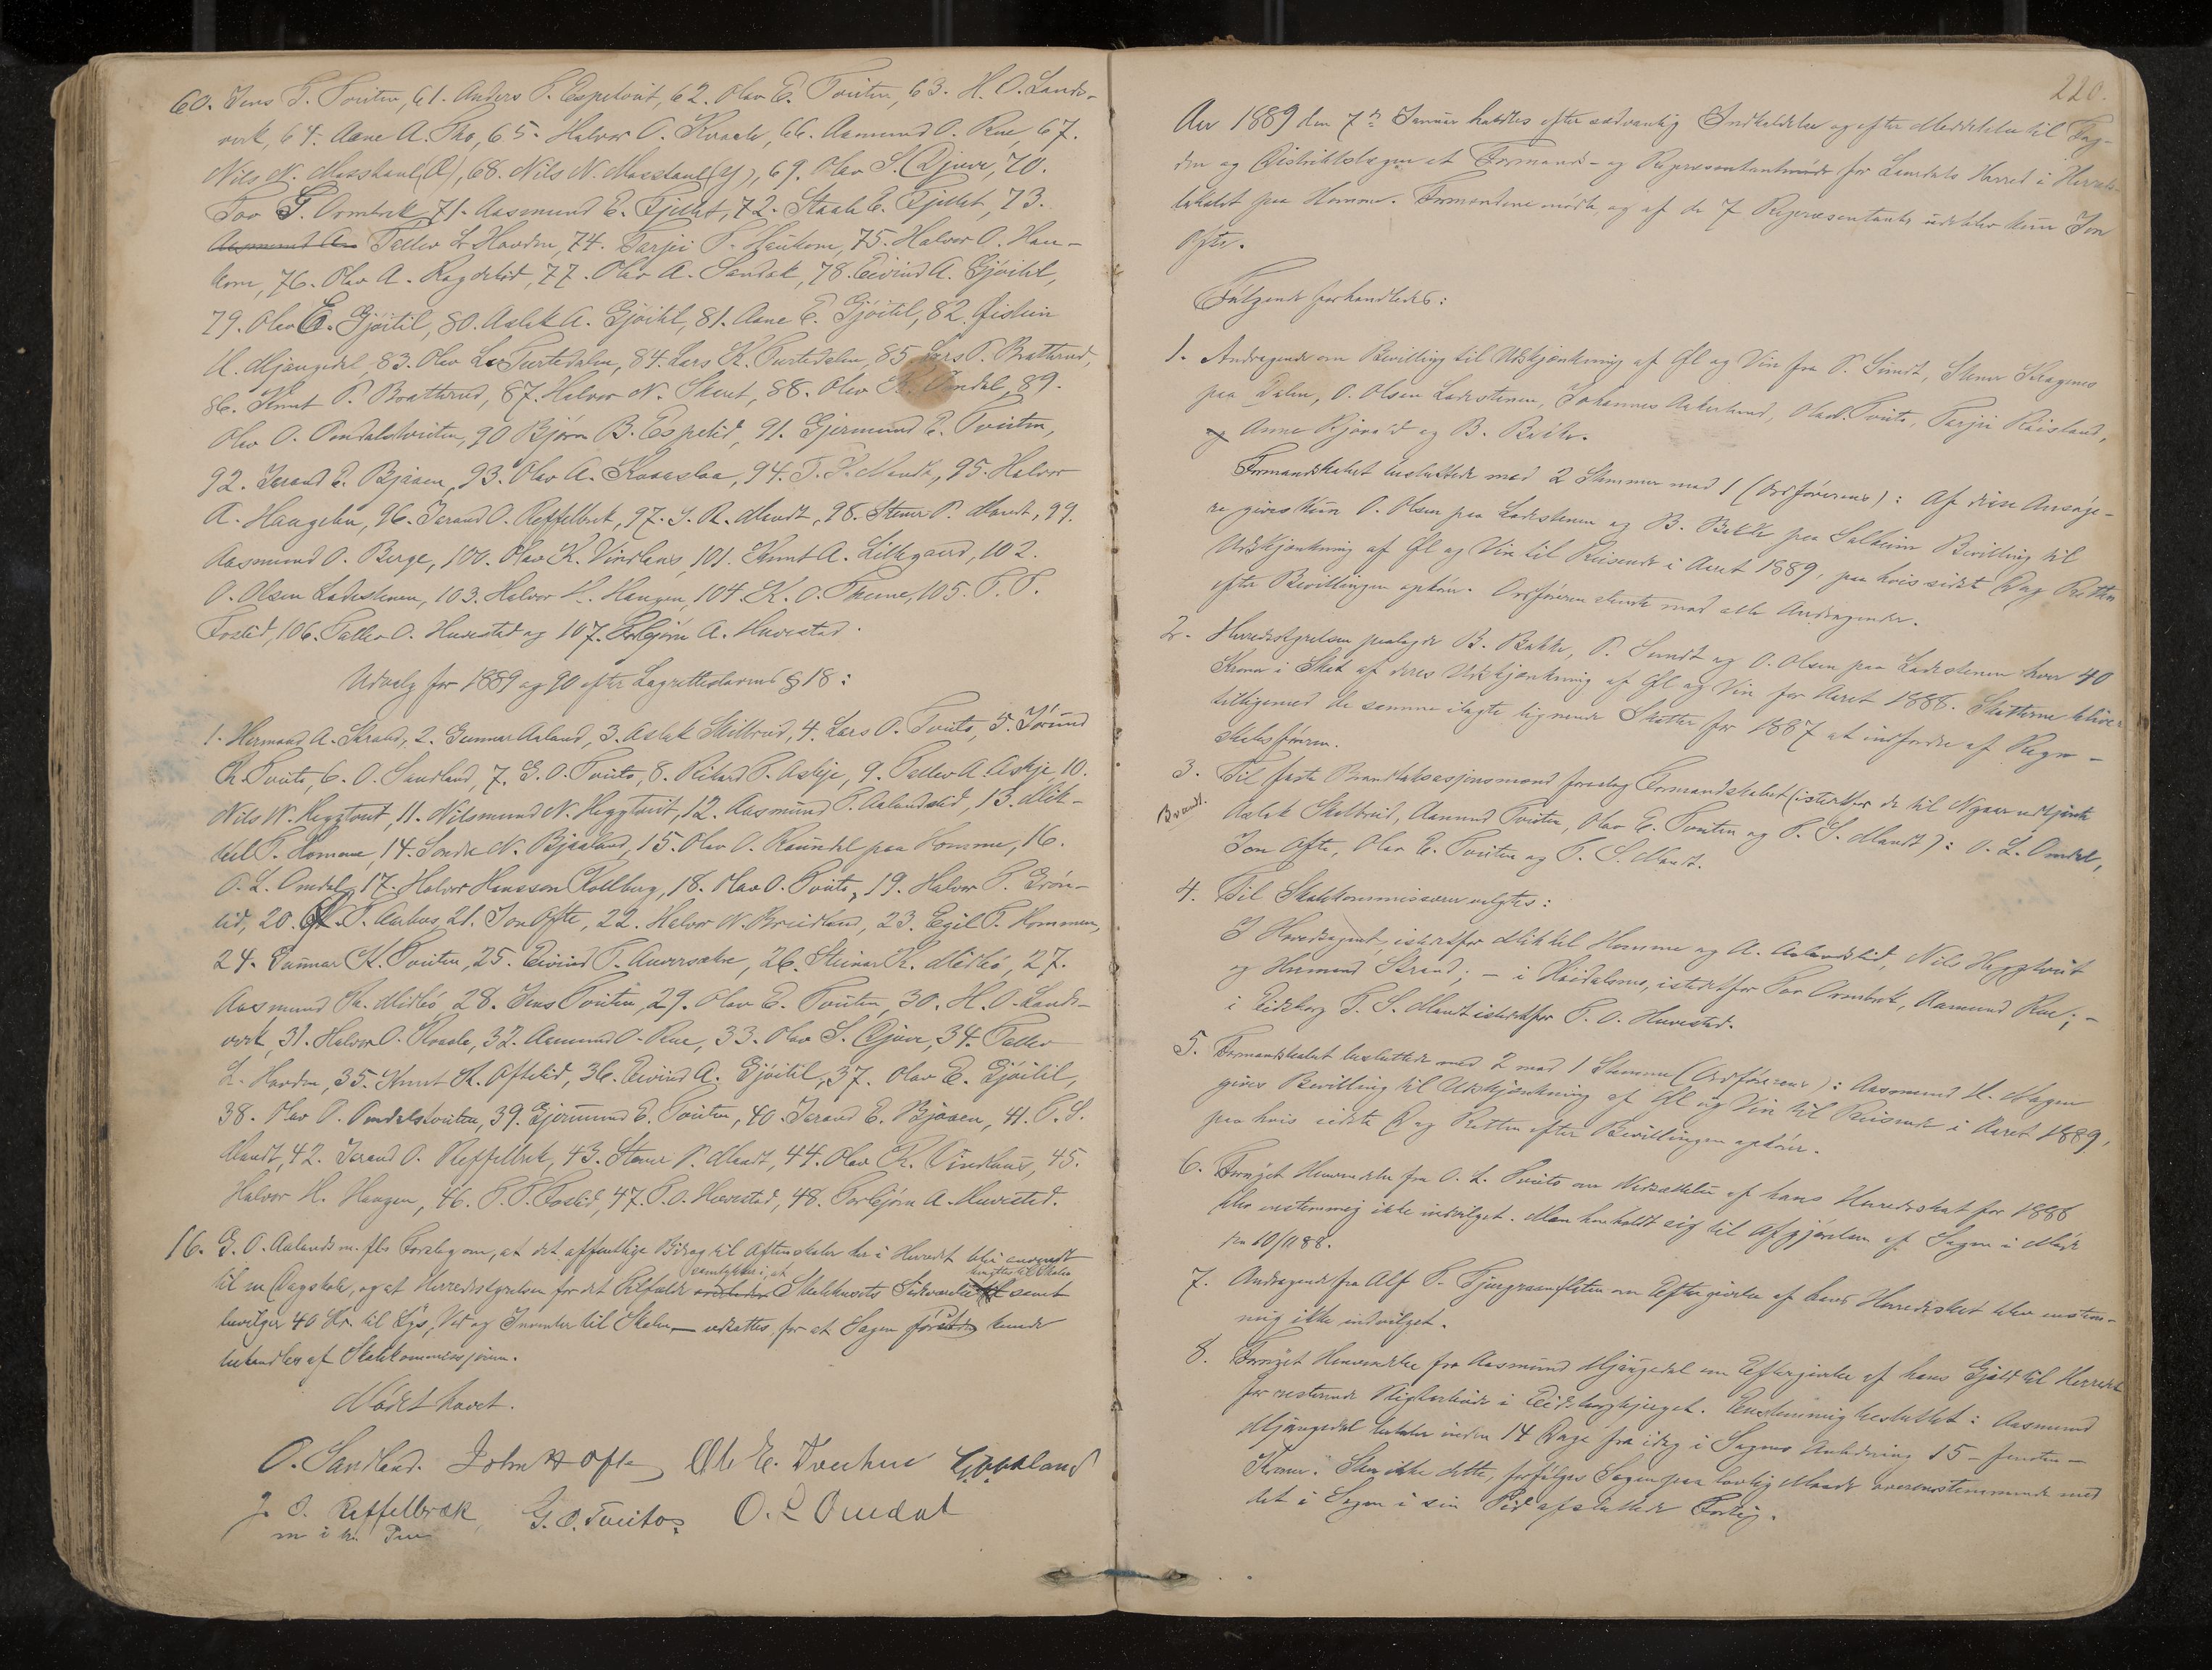 60. Jens T. Tveiten, 61. Anders T. Espetveit, 62. Olav E. Tveiten, 63. H. O. Lands-
verk, 64. Aane A. Tho, 65. Halvor O. Kvaale, 66. Aamund O. Rue, 67.
Nils N. Masstaul (Æ), 68. Nils N. Masstaul (y), 69. Olav S. Djuve, 70.
Tov G. Ormbrek, 71. Aasmund E. Fjellet, 72. Staale E. Fjellet, 73.
Tallev L. Hovden, 74. Tarjei T. Haukom, 75. Halvor O. Hau-
kom, 76. Olav A. Ragdelid, 77. Olav A. Sandok, 78. Eivind A. Gjøitil,
79. Olav E. Gjøitil, 80. Aslak A. Gjøitil, 81. Aane E. Gjøitil, 82. Øistein
U. Mjaugedal, 83. Olav L. Turtedalen, 84. Lars K. Turtedalen, 85. Lars P. Bratterud,
86. Knut P. Bratterud, 87. Halvor N. Skeut, 88. Olav K. Omdal, 89.
Olav O. Omdalstveiten, 90 Bjørn B. Espelid, 91. Gjermund E. Tveiten,
92. Jorand E. Bjaaen, 93. Olav A. Kovaslaa, 94. T. S. Mandt, 95. Halvor
A. Haugelen, 96. Jorand O. Reffelbrek, 97. S. R. Mandt, 98. Stener P. Mandt, 99.
Aasmund O. Berge, 100. Olav K. Vindlaus, 101. Knut A. Lillegaard, 102.
O. Olsen Ladestenen, 103. Halvor H. Haugen, 104. K. O. Theme, 105. T. T.
Foslid, 106. Tallev O. Huvestad og 107. Torbjørn A. Huvestad.
Udvalg for 1889 og 90 efter Lagrettelovens § 18:
1. Hermand A. Strand, 2. Gunnar Aaland, 3. Aslak Skilbred, 4. Lars O. Tveito, 5. Jørund
K. Tveito, 6. O. Sandland, 7. G. O. Tveito, 8. Rikard T. Askje, 9. Tallev A. Askje, 10.
Nils N. Heggtveit, 11. Nilsmund N. Heggtveit, 12. Aasmund T. Aalandslid, 13. Mik-
kel T. Homme, 14. Sondre N. Bjaaland, 15. Olav O. Raundal paa Homme, 16.
O. L. Omdal, 17. Halvor Hansson Kollberg, 18. Olav O. Tveito, 19. Halvor T. Grøn-
lid, 20. T. Aarhus, 21. Jon Ofte, 22. Halvor N. Breidland, 23. Egil T. Hommen,
24. Gunnar K. Tveiten, 25. Eivind T. Auversakre, 26. Steinar K. Midbø, 27.
Aasmund K. Midbø, 28. Jens Tveiten, 29. Olav E. Tveiten, 30. H. O. Lands-
verk, 31. Halvor O. Kvaale, 32. Aamund O. Rue, 33. Olav S. Djuve, 34. Tallev
L. Hovden, 35. Knut K. Oftelid, 36. Eivind A. Gjøitil, 37. Olav E. Gjøitil,
38. Olav O. Omdalstveiten, 39. Gjermund E. Tveiten, 40. Jorand E. Bjaaen, 41. T. S.
Mandt, 42. Jorand O. Reffelbrek, 43. Stener P. Mandt, 44. Olav K. Vindlaus, 45.
Halvor H. Haugen, 46. T. T. Foslid, 47. T. O. Huvestad, 48. Torbjørn A. Huvestad.
16. G. O. Aalands m. fls Forslag om, at det offentlige Bidrag til Aftenskoler her i Herredet blir anvendt
samtykker i, at benyttes til Skolen
til en Dagskole, og at Herredsstyrelsen for det Tilfælde Skolehusets samt
bevilger 40 Kr. til Lys, Ved og Inventar til Skolen – udsattes, for at Sagen kunde
behandles af Skolekommissjonen.
Mødet hævet.
O. Sandland. John H Ofte Ole E. Tveiten G. O. Aaland
J. O. Reffelbræk G. O. Tveito. O. L. Omdal
m i h. Pen
220.
Aar 1889 den 7de Januar holdtes efter sædvanlig Indkaldelse og efter Meddelelse til Fog-
den og Distriktslægen et Formands- og Repræsentantmøde for Laurdals Herred i Herreds-
lokalet paa Homme. Formændene mødte, og af de 7 Repræsentanter udeblev kun Jon
Ofte.
Følgende forhandledes:
1. Andragende om Bevilling til Udskjænkning af Øl og Vin fra P. Sundt, Stener Kragenes
paa Dalen, O. Olsen Ladestenen, Johannes Aakerlund, Olav Tveito, Tarjei Raisland,
og Anne Bjaaed og B. Bakke.
Formandskabet besluttede med 2 Stemmer mod 1 (Ordførerens): Af disse Ansøge-
re gives kun O. Olsen paa Ladestenen og B. Bakke paa Solheim Bevilling til
Udskjænkning af Øl og Vin til Reisende i Aaret 1889, paa hvis sidste Dag Retten
efter Bevillingen ophør. Ordføreren stemte mod alle Andragender.
2. Herredsstyrelsen paalagde B. Bakke, P. Sundt og O. Olsen paa Ladestenen hver 40
Kroner i Skat af deres Udskjænkning af Øl og Vin for Aaret 1888. Skatterne bliver
tilligemed de samme ilagte lignende Skatter for 1887 at indfordre af Regn-
skabsføreren.
3. Til faste Brandtaksasjonsmænd foreslog Formandskabet (istedetfor de til Nyaar udtjente
Brandt.
Aslak Skilbred, Aamund Tveiten, Olav E. Tveiten og T. S. Mandt): O. L. Omdal,
Jon Ofte, Olav E. Tveiten og T. S. Mandt.
4. Til Skolekommissærer valgtes:
I Hovedsognet, istedetfor Mikkel Homme og A. Aalandslid, Nils Heggtveit
og Hermand Strand; – i Høidalsmo, istedetfor Tov Ormbrek, Aamund Rue; –
i Eidsborg T. S. Mandt istedetfor T. O. Huvestad.
5. Formandskabet besluttede med 2 mod 1 Stemme (Ordførerens): Aasmund H. Hagen
gives Bevilling til Udskjænkning af Øl og Vin til Reisende i Aaret 1889,
paa hvis sidste Dag Retten efter Bevillingen ophør.
6. Fornyet Henvendelse fra O. L. Tveito om Nedsættelse af hans Herredsskat for 1888
blev enstemmig ikke indvilget. Man henholdt sig til Afgjørelsen af Sagen i Møde
den 10/11 88.
7. Andragende fra Alf T. Fjurgraanflaten om Eftergivelse af hans Herredsskat blev enstem-
mig ikke indvilget.
8. Fornyet Henvendelse fra Aasmund Mjaugedal om Eftergivelse af hans Gjæld til Herredet
for resterende Pligtarbeide i Eidsborgbjerget. Enstemmig besluttet: Aasmund
Mjaugedal betaler inden 14 Dage fra idag i Sagens Anledning 15 – femten –
Kroner. Sker ikke dette, forfølges Sagen paa lovlig Maade overensstemmende med
det i Sagen i sin Tid afsluttede Forlig.